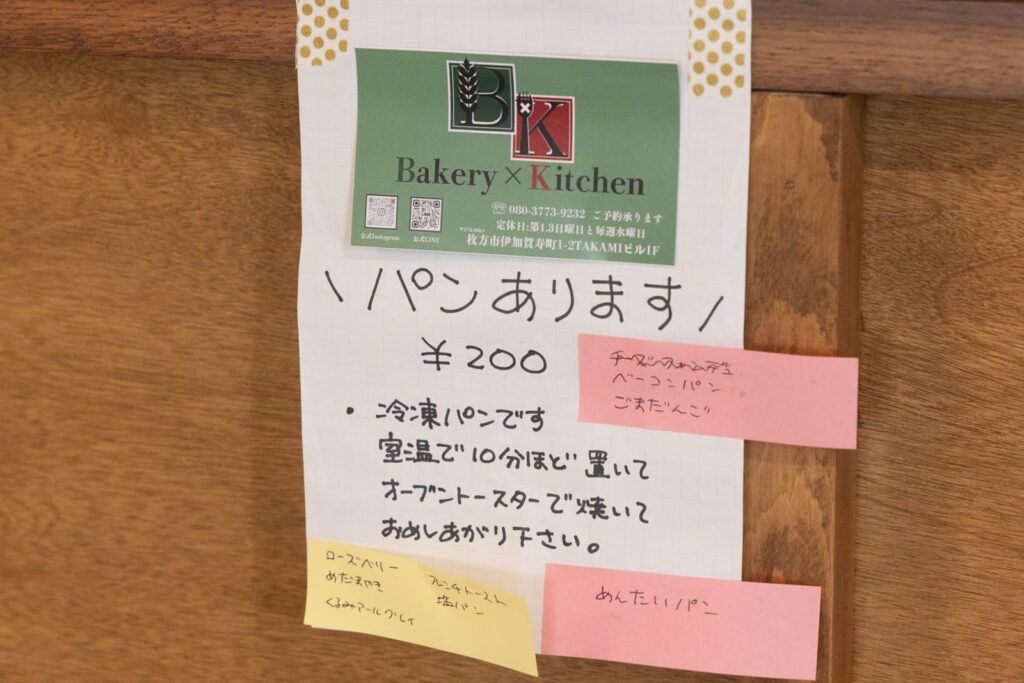 BK
Bakery × Kitchen
☏ 080-3773-9232 ご予約承ります
定休日:第1.3日曜日と毎週水曜日
枚方市伊加賀寿町1-2TAKAMIビル1F
公式Instagram
公式LINE
\パンあります/
¥200
ベーコンパン
ごまだんご
・冷凍パンです
室温で10分ほど置いて
オーブントースターで焼いて
おめしあがり下さい。
ローズベリー
めだまやき
くるみアールグレイ
フレンチトースト
塩パン
めんたいパン